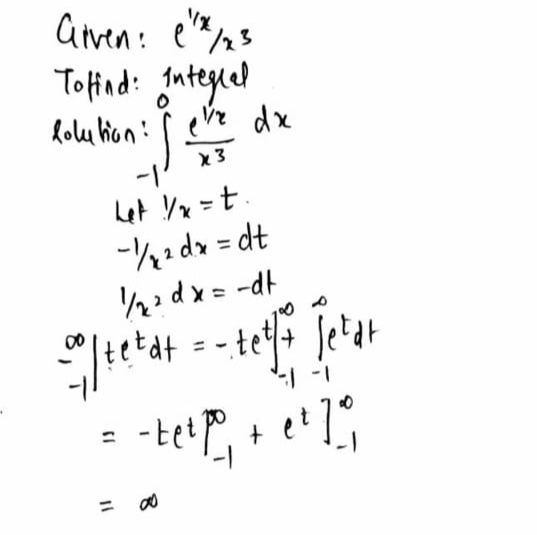 Given: e^1/x/x^3
To find: Integral
Solution: ∫_{-1}^{0} e^{1/x}/x^3 dx
Let 1/x = t.
-1/x^2 dx = dt
1/x^2 dx = -dt
-∫_{-1}^{∞} te^t dt = -te^t]_{-1}^{∞} + ∫_{-1}^{∞} e^t dt
= -te^t]_{-1}^{∞} + e^t]_{-1}^{∞}
= ∞